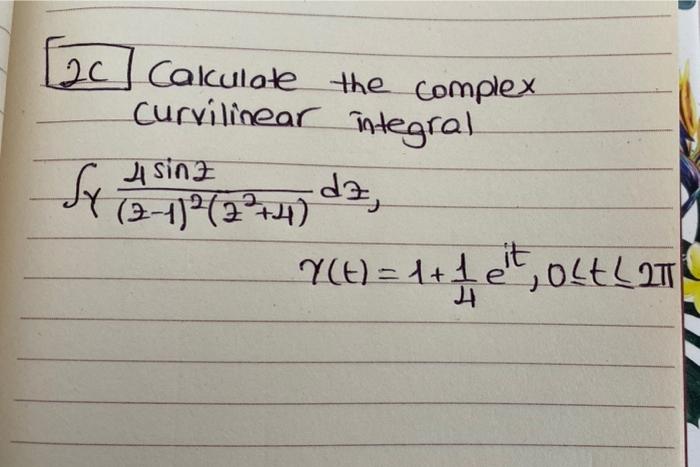 2c Calculate the complex
curvilinear integral
∫γ 4 sinz / (z-1)²(z²+4) dz,
γ(t) = 1 + 1/4 e^it, 0≤t≤2π